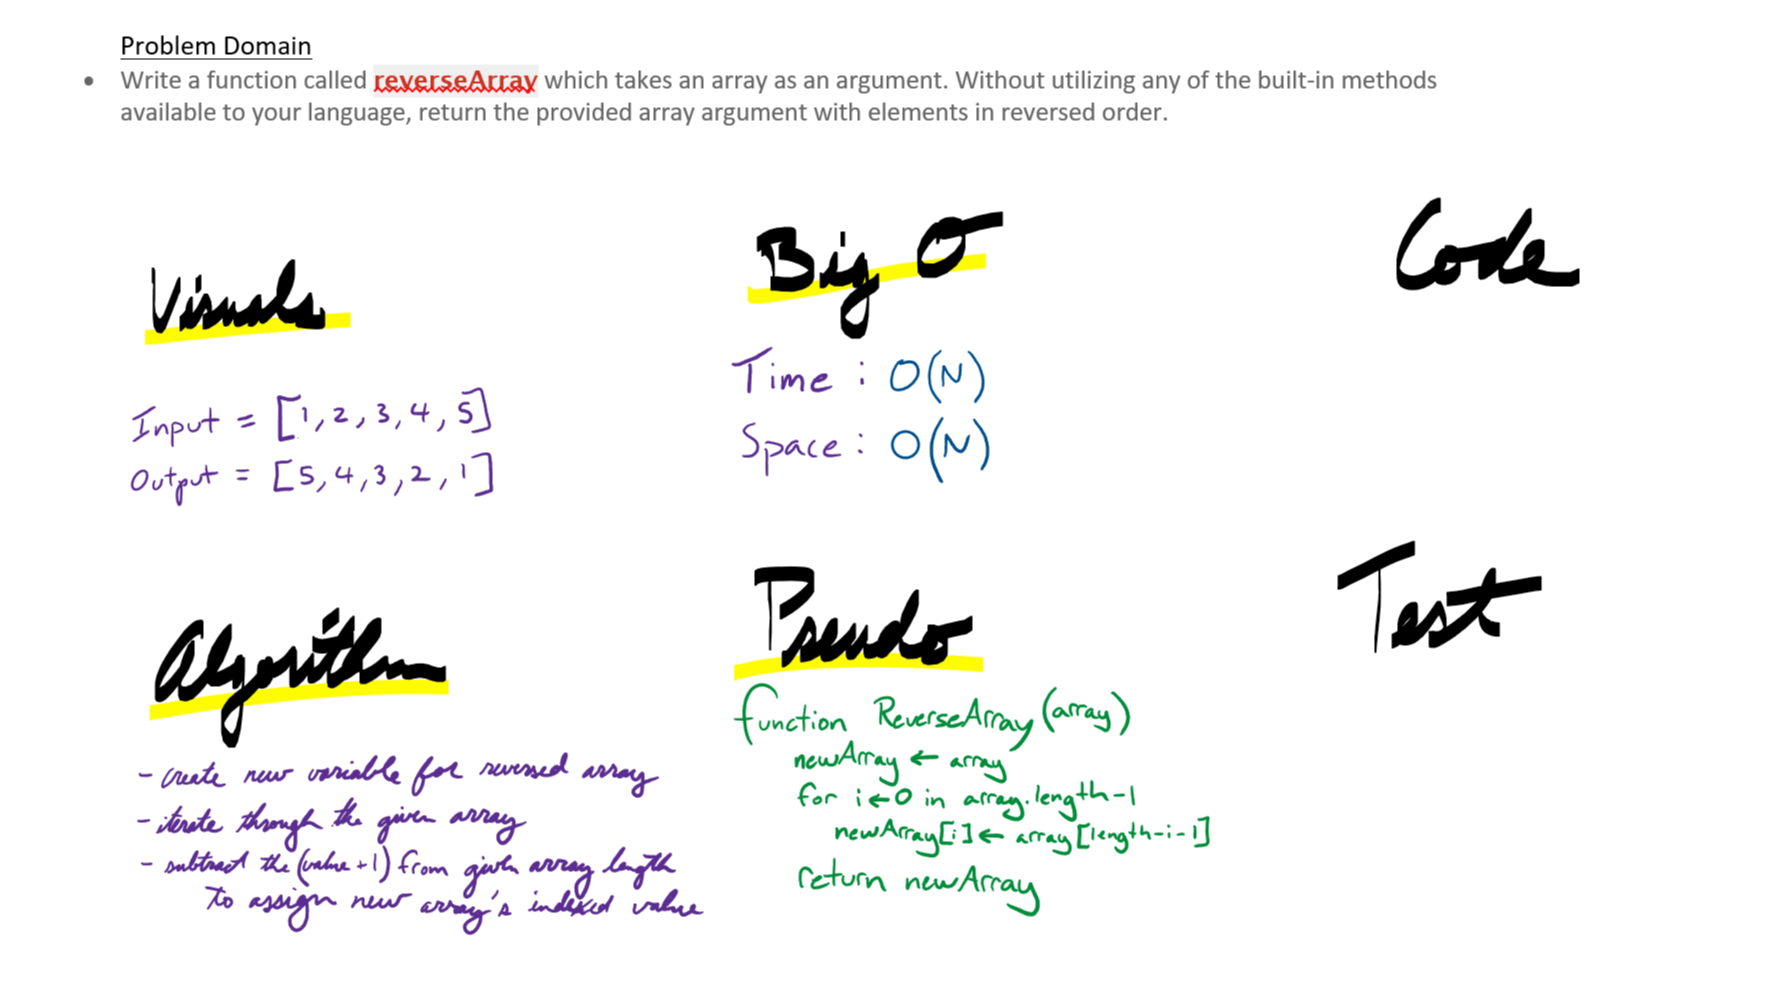 Problem Domain
• Write a function called reverseArray which takes an array as an argument. Without utilizing any of the built-in methods
available to your language, return the provided array argument with elements in reversed order.
Visuals
Input = [1, 2, 3, 4, 5]
Output = [5, 4, 3, 2, 1]
Big O
Time : O(N)
Space : O(N)
Code
Algorithm
- create new variable for reversed array
- iterate through the given array
- subtract the (value + 1) from given array length
to assign new array's indexed value
Pseudo
function ReverseArray (array)
newArray ← array
for i ← 0 in array.length-1
newArray[i] ← array [length-i-1]
return newArray
Test